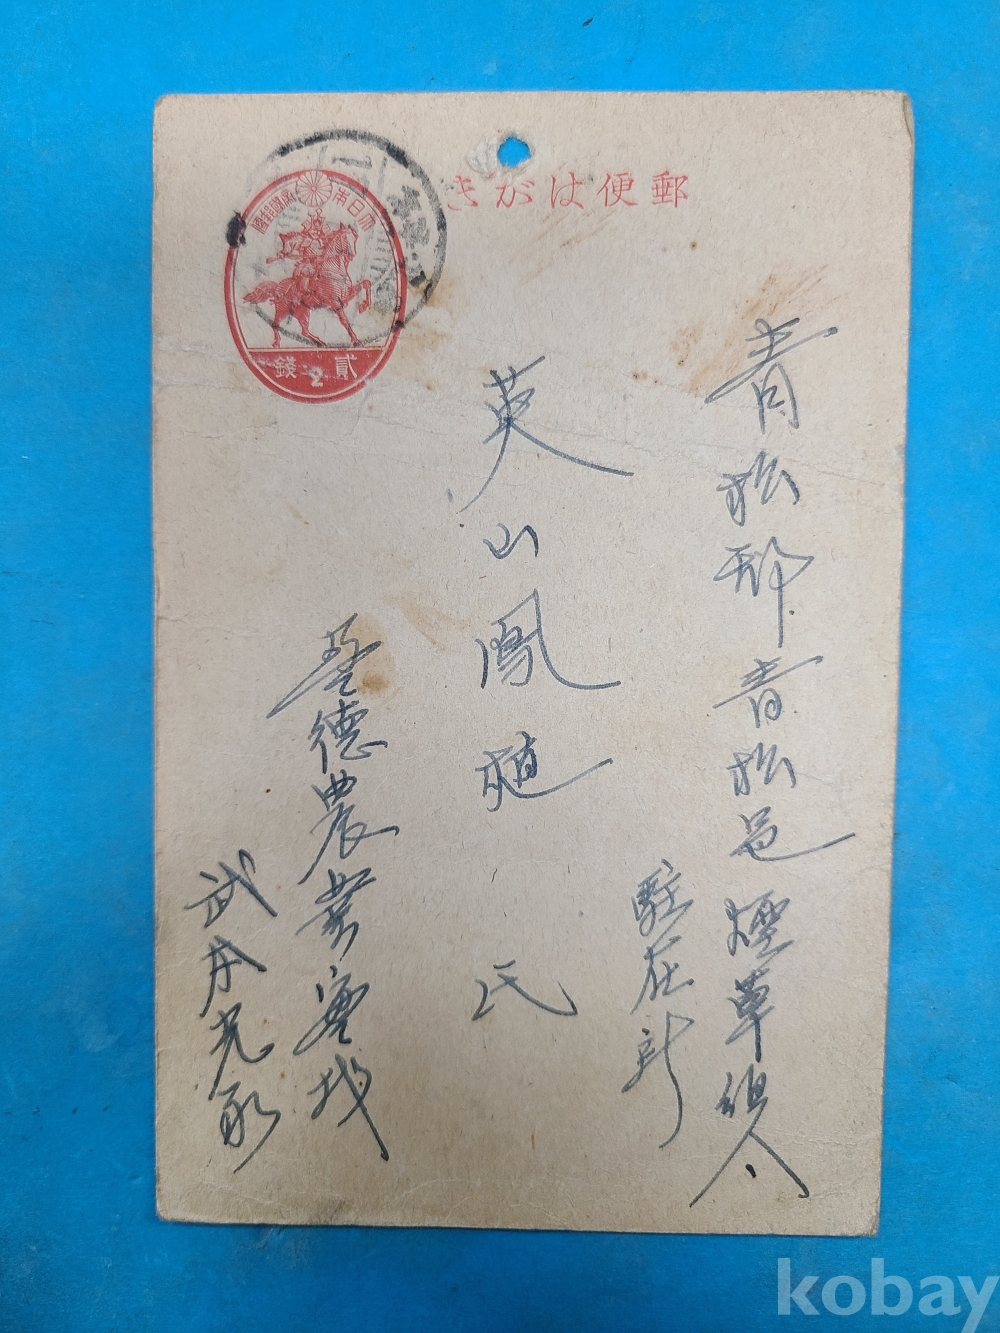 郵便はがき
大日本帝國郵便
貳錢
2
青松郡青松邑煙草組合
駐在所
英山鳳植 氏
盈德農業實

kobay